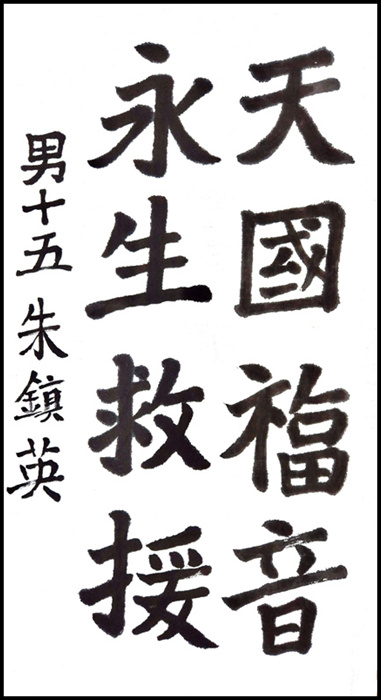 天國福音
永生救援
男十五 朱鎮英